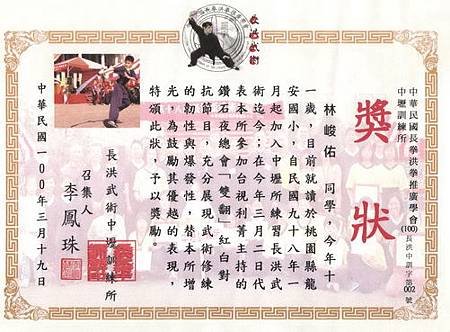 中華民國長拳洪拳推廣學會
中壢訓練所
(100)長洪中訓字第002號
獎狀
林峻佑 同學,今年十
一歲,目前就讀於桃園縣龍
安國小,自民國九十八年一
月起加入中壢所練習長洪武
術迄今;在今年三月二日代
表本所參加台視利菁主持的
鑽石夜總會「雙翻」紅白對
抗節目,充分展現武術修練
的韌性與爆發性,替本所增
光,為鼓勵其優越的表現,
特頒此狀,予以獎勵。
長洪武術中壢訓練所
召集人 李鳳珠
中華民國一00年三月十九日